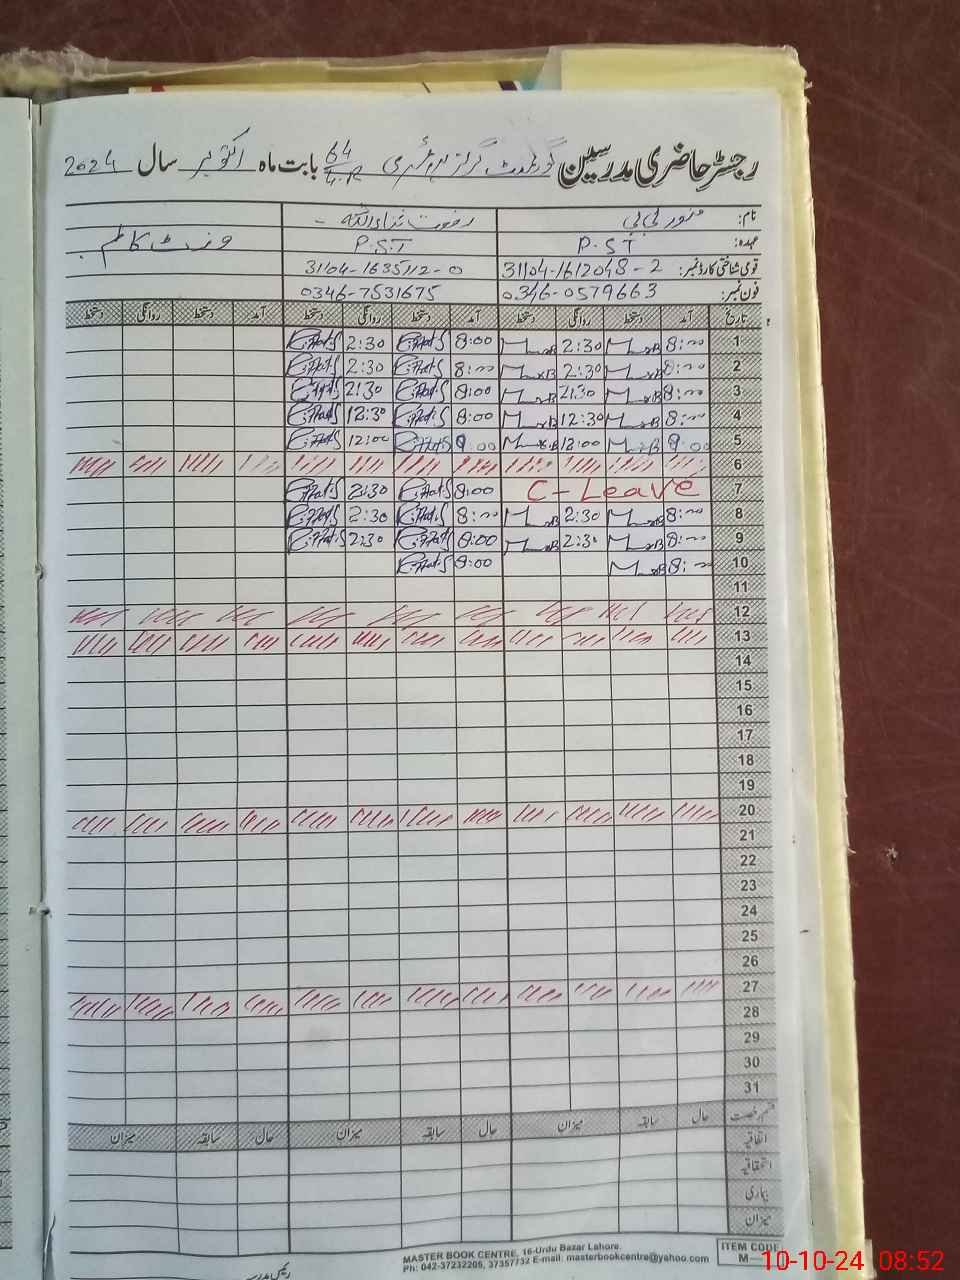 رجسٹر حاضری مدرسین گورنمنٹ گرلز پرائمری 64/4.R بابت ماہ اکتوبر سال 2024
نام: منور بی بی رفعت ثناءاللہ
عہدہ: P.S.T P.S.T وزٹ کالم
قومی شناختی کارڈ نمبر: 31104-1612048-2 31104-1635112-0
فون نمبر: 0346-0579663 0346-7531675
تاریخ آمد دستخط روانگی دستخط آمد دستخط روانگی دستخط آمد دستخط روانگی دستخط
1 8:00 2:30 8:00 2:30
2 8:00 2:30 8:00 2:30
3 8:00 2:30 8:00 2:30
4 8:00 12:30 8:00 12:30
5 9:00 12:00 9:00 12:00
6
7 C-Leave 8:00 2:30
8 8:00 2:30 8:00 2:30
9 8:00 2:30 8:00 2:30
10 8:00 8:00
11
12
13
14
15
16
17
18
19
20
21
22
23
24
25
26
27
28
29
30
31
قسم رخصت حال سابقہ میزان حال سابقہ میزان حال سابقہ میزان
اتفاقیہ
استحقاقیہ
بیماری
میزان
MASTER BOOK CENTRE, 16-Urdu Bazar Lahore.
Ph: 042-37232205, 37357732 E-mail: masterbookcentre@yahoo.com
ITEM CODE
رئیس مدرسہ
10-10-24 08:52